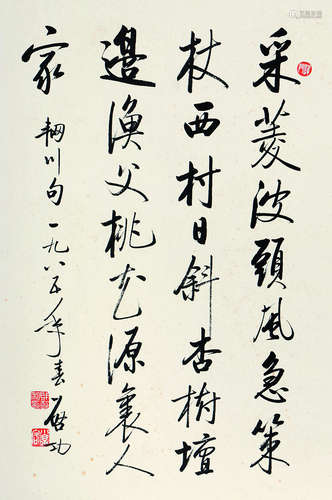 采菱波頭風急策
杖西村日斜杏樹壇
邊漁父桃花源裏人
家 輞川句 一九八五年春 啟功